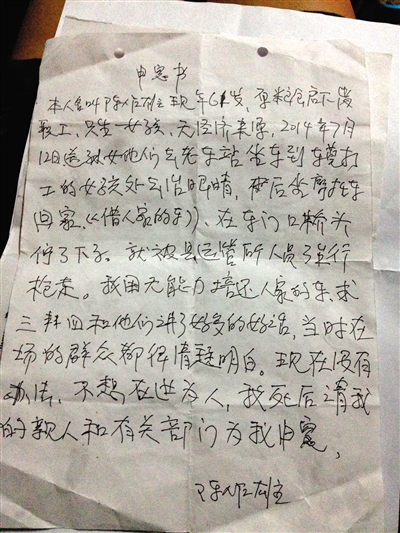 申冤书
本人名叫陈佐雄主现年61岁，原粮食局下岗
职工，只生一女孩，无经济来源，2014年7月
12日送孙女她们去老车站坐车到车尊打
工的女孩处去治眼睛，而后坐摩托车
回家，《(借人家的车)》，在车门口桥头
停了下了。就被县运管所人员强行
抢走。我困无能力培还人家的车，求
三拜四和他们讲了好多的好话，当时在
场的群众都很清楚明白。现在没有
办法，不想在进为人，我死后请我
的亲人和有关部门为我申冤，
陈佐雄主